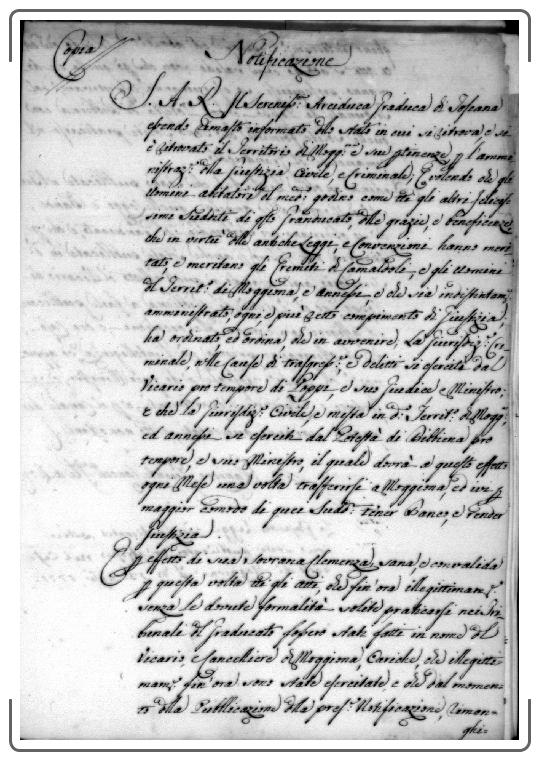 Copia
Notificazione
S. A. R. Il Sereniss: Arciduca Granduca di Toscana
essendo rimasto informato dello stato in cui si ritrova, e si
è ritrovato il Territorio di Mogg:ᵃ e sue ptinenze p l'ammi
nistraz: della Giustizia Civile, e Criminale; E volendo che gli
Uomini abitatori il med: godino come tti gli altri Felicis-
simi Sudditi di qto Granducato, delle grazie, e beneficenze
che in virtù delle antiche Leggi, e Convenzioni hanno meri
tati, e meritano gli Eremiti di Camaldoli, e gli Uomini
del Territ: di Moggiona, e annessi, e che sia indistintam:
amministrato ogni, e più retto compimento di Giustizia,
ha ordinato, ed ordina che in avvenire, la Giurisdiz: Cri-
minale, nelle Cause di trasgress:, e delitti si eserciti dal
Vicario pro tempore di Poppi, e suo Giudice e Ministro;
e che la Giurisdiz: Civile, e mista in d: Territ: di Mogg:
ed annessi si eserciti dal Potestà di Bibbiena pro
tempore, e suo Ministro, il quale dovrà a questo effetto
ogni Mese una volta trasferirsi a Moggiona, ed ivi p
maggior comodo di quei Sudd: tener Banco, e render
Giustizia.
E p effetto di sua sovrana Clemenza, sana, e convalida
p questa volta tti gli atti, che fin'ora illegittimam:
senza le dovute formalità solite praticarsi nei Tri-
bunali del Granducato fossero stati fatti in nome del
Vicario, e Cancelliere di Moggiona, Cariche, che illegitti-
mam: fin'ora sono state esercitate, e che dal momen-
to della Pubblicazione della pres: Notificazione, riman-
ghi=